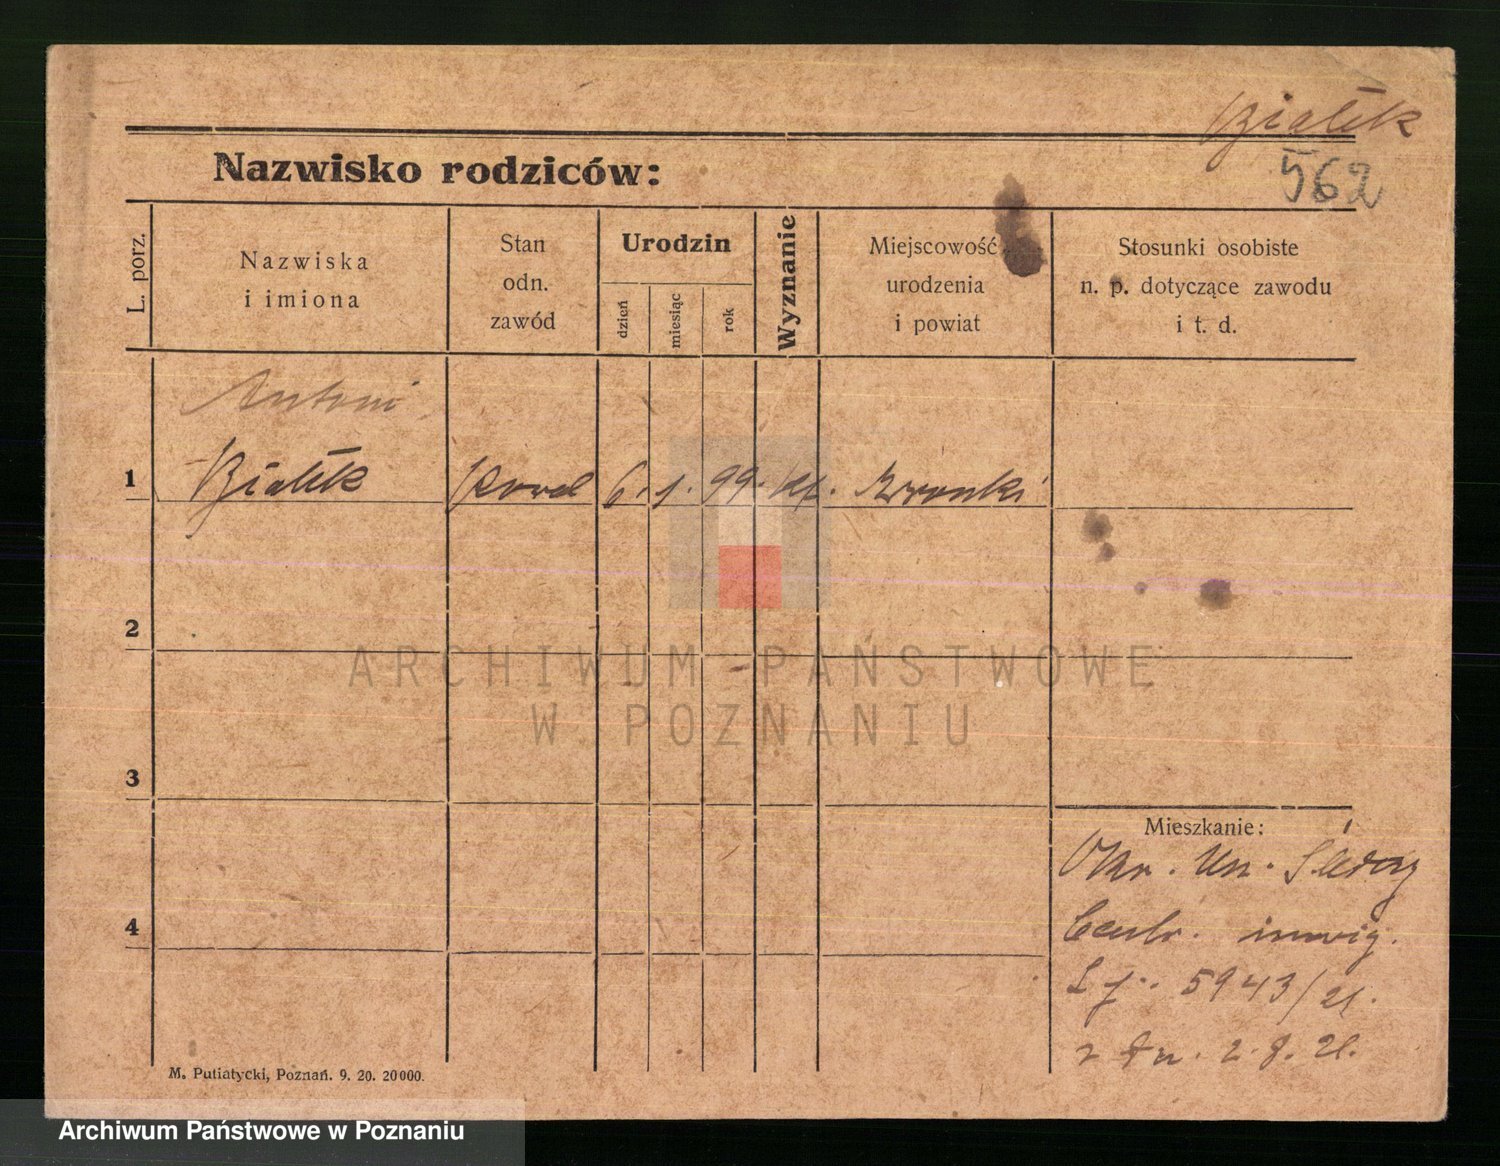 Białek
562
Nazwisko rodziców:
L. porz.
Nazwiska
i imiona
Stan
odn.
zawód
Urodzin
dzień
miesiąc
rok
Wyznanie
Miejscowość
urodzenia
i powiat
Stosunki osobiste
n. p. dotyczące zawodu
i t. d.
Antoni
1 Białek 6. 1. 99. Wronki
2
3
4
Mieszkanie:
Okr. Un. Śledczy
Centr. inwig.
5943/21.
z dn. 2. 8. 21.
M. Putiatycki, Poznań. 9. 20. 20000.
ARCHIWUM PAŃSTWOWE
W POZNANIU
Archiwum Państwowe w Poznaniu